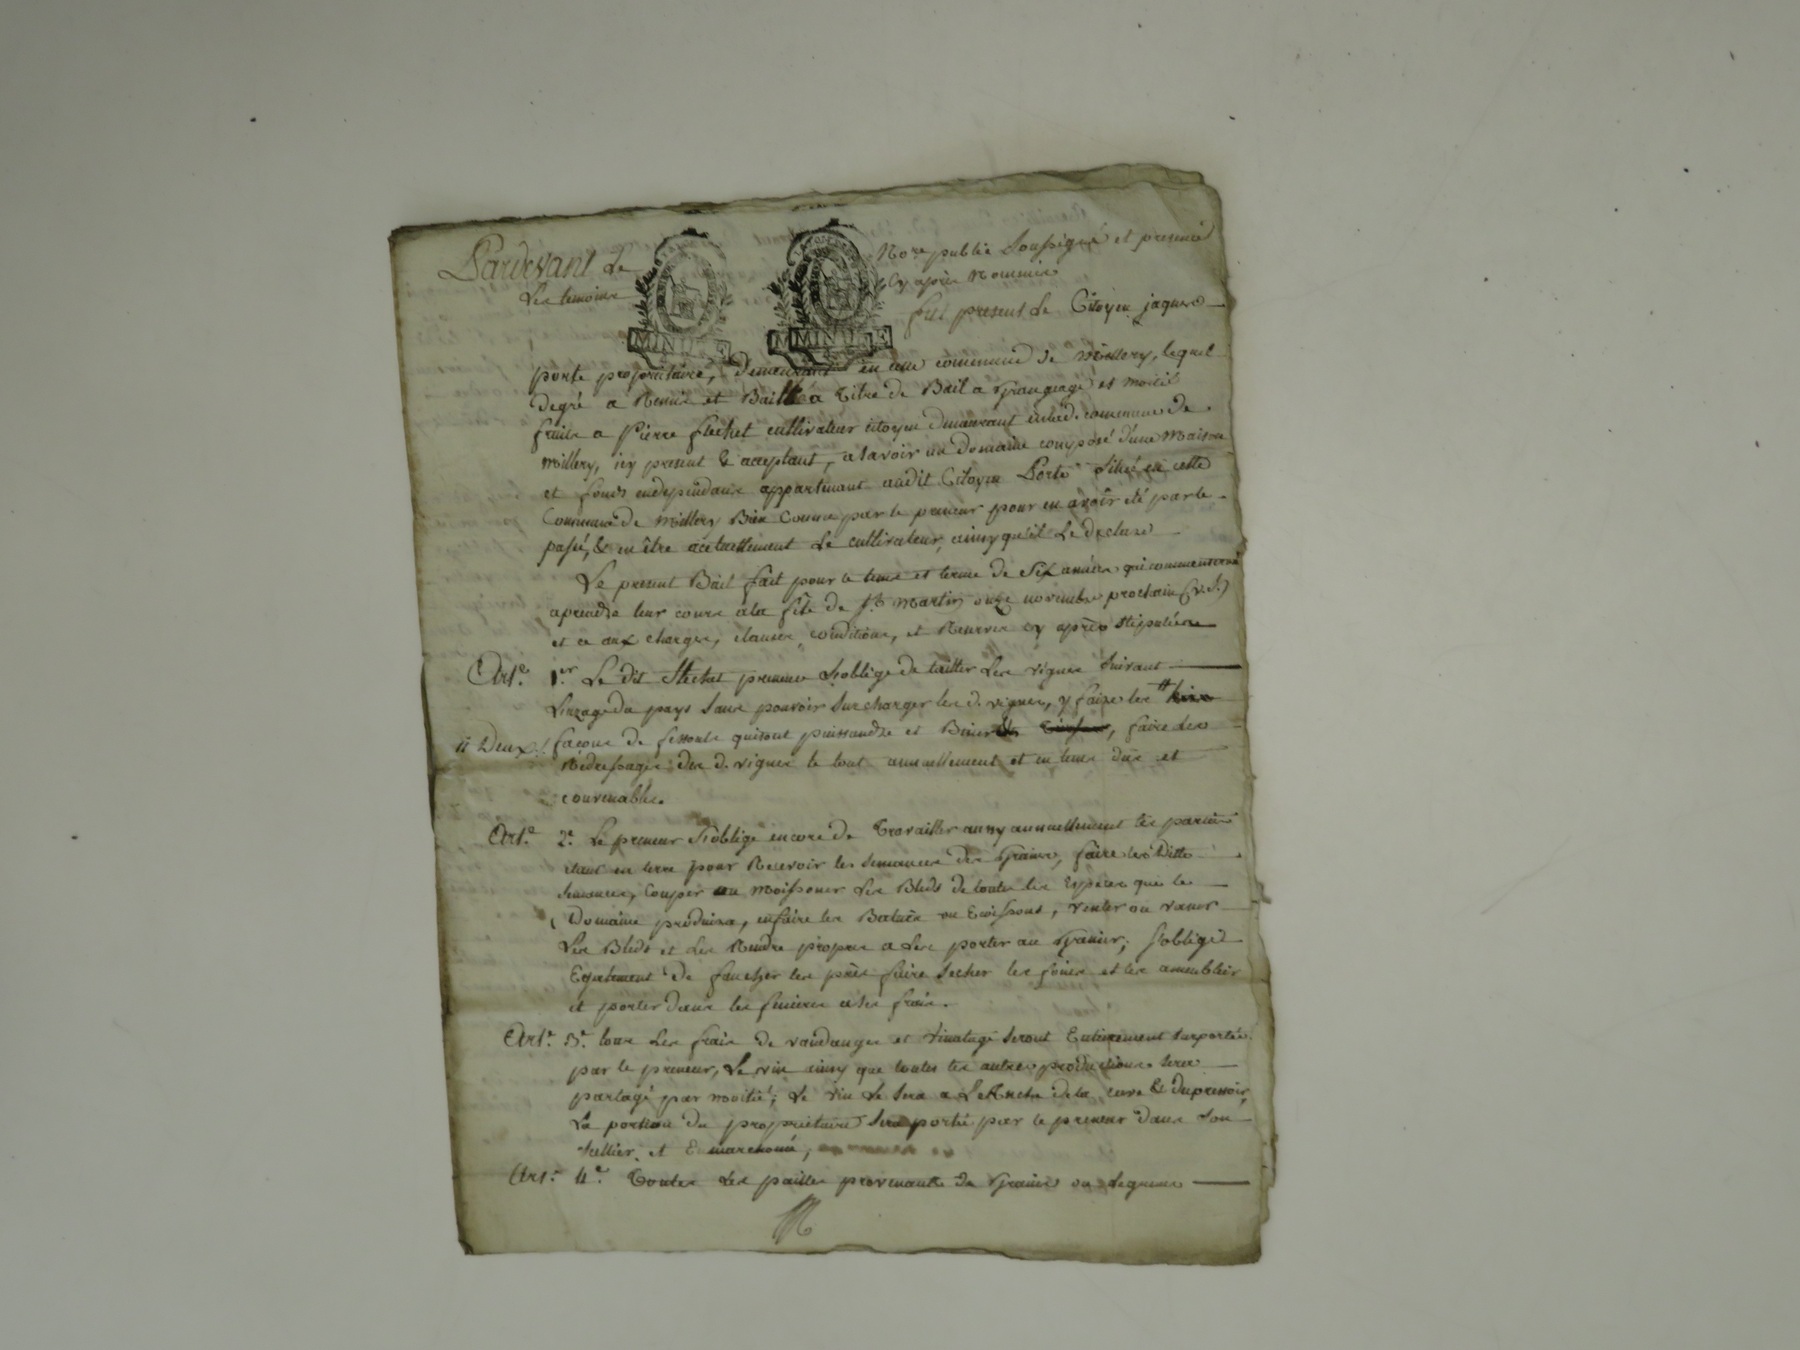 Pardevant Le Nore public Soussigné et presence
Les temoins cy après Nommés
MINUTE MINUTE
fut present le Citoyen jaques
porte propriétaire, demeurant en cette commune de Millery, lequel
degré a Remis et Baillé a titre de Bail a Grangeage et moitié
fruits a Pierre flechet cultivateur citoyen dmeurant en lad. commune de
Millery, icy present & acceptant, a savoir un Domaine composé d'une Maison
et fonds endependans appartenant audit Citoyen Porte Situé en cette
Commune de Millery Bien Connu par le preneur pour en avoir été par le
passé, & en être actuellement le cultivateur, ainsy qu'il le declare
Le present Bail fait pour le tems et terme de Six années qui commenseront
aprendre leur cours ala fête de St Martin onze novembre prochain (v.S.)
et ce aux charges, clauses conditions, et Reserves cy après stipulées
Art.e 1.er Le dit flechet preneur S'oblige de tailler les vignes Suivant
L'uzage du pays sans pouvoir Surcharger les d. vignes, y faire les
" Deux façons de fessoule quisont puissandre et Biner, faire les
Redressages des d. vignes le tout annuellement et en tems dus et
convenables.
Art.e 2.e Le preneur S'oblige encore de Travailler aussy annuellement les parties
etant en terre pour Recevoir les semances des Grains, faire les ditte
semances, Couper ou Moissoner Les Bleds de toutes les Espèces que le
Domaine produira, en faire les Batues ou Ecossons, venter ou vaner
Les Bleds et les Rendre propres a Les porter au Grenier; S'oblige
Egalement de faucher les près faire secher les foins et les amenbler
et porter dans les finieres a ses frais.
Art.e 3.e tous Les frais de vandanges et tinalage seront Entierement suportés
par le preneur, Le vin ainsy que toutes les autres productions sera
partagé par moitié; Le vin Le sera a L'Anche de la cuve & du pressoir,
La portion du propriétaire sera portée par le preneur dans Son
Sellier et Emarchoné,
Art.e 4.e Toutes Les pailles provenants de Grains ou Legumes